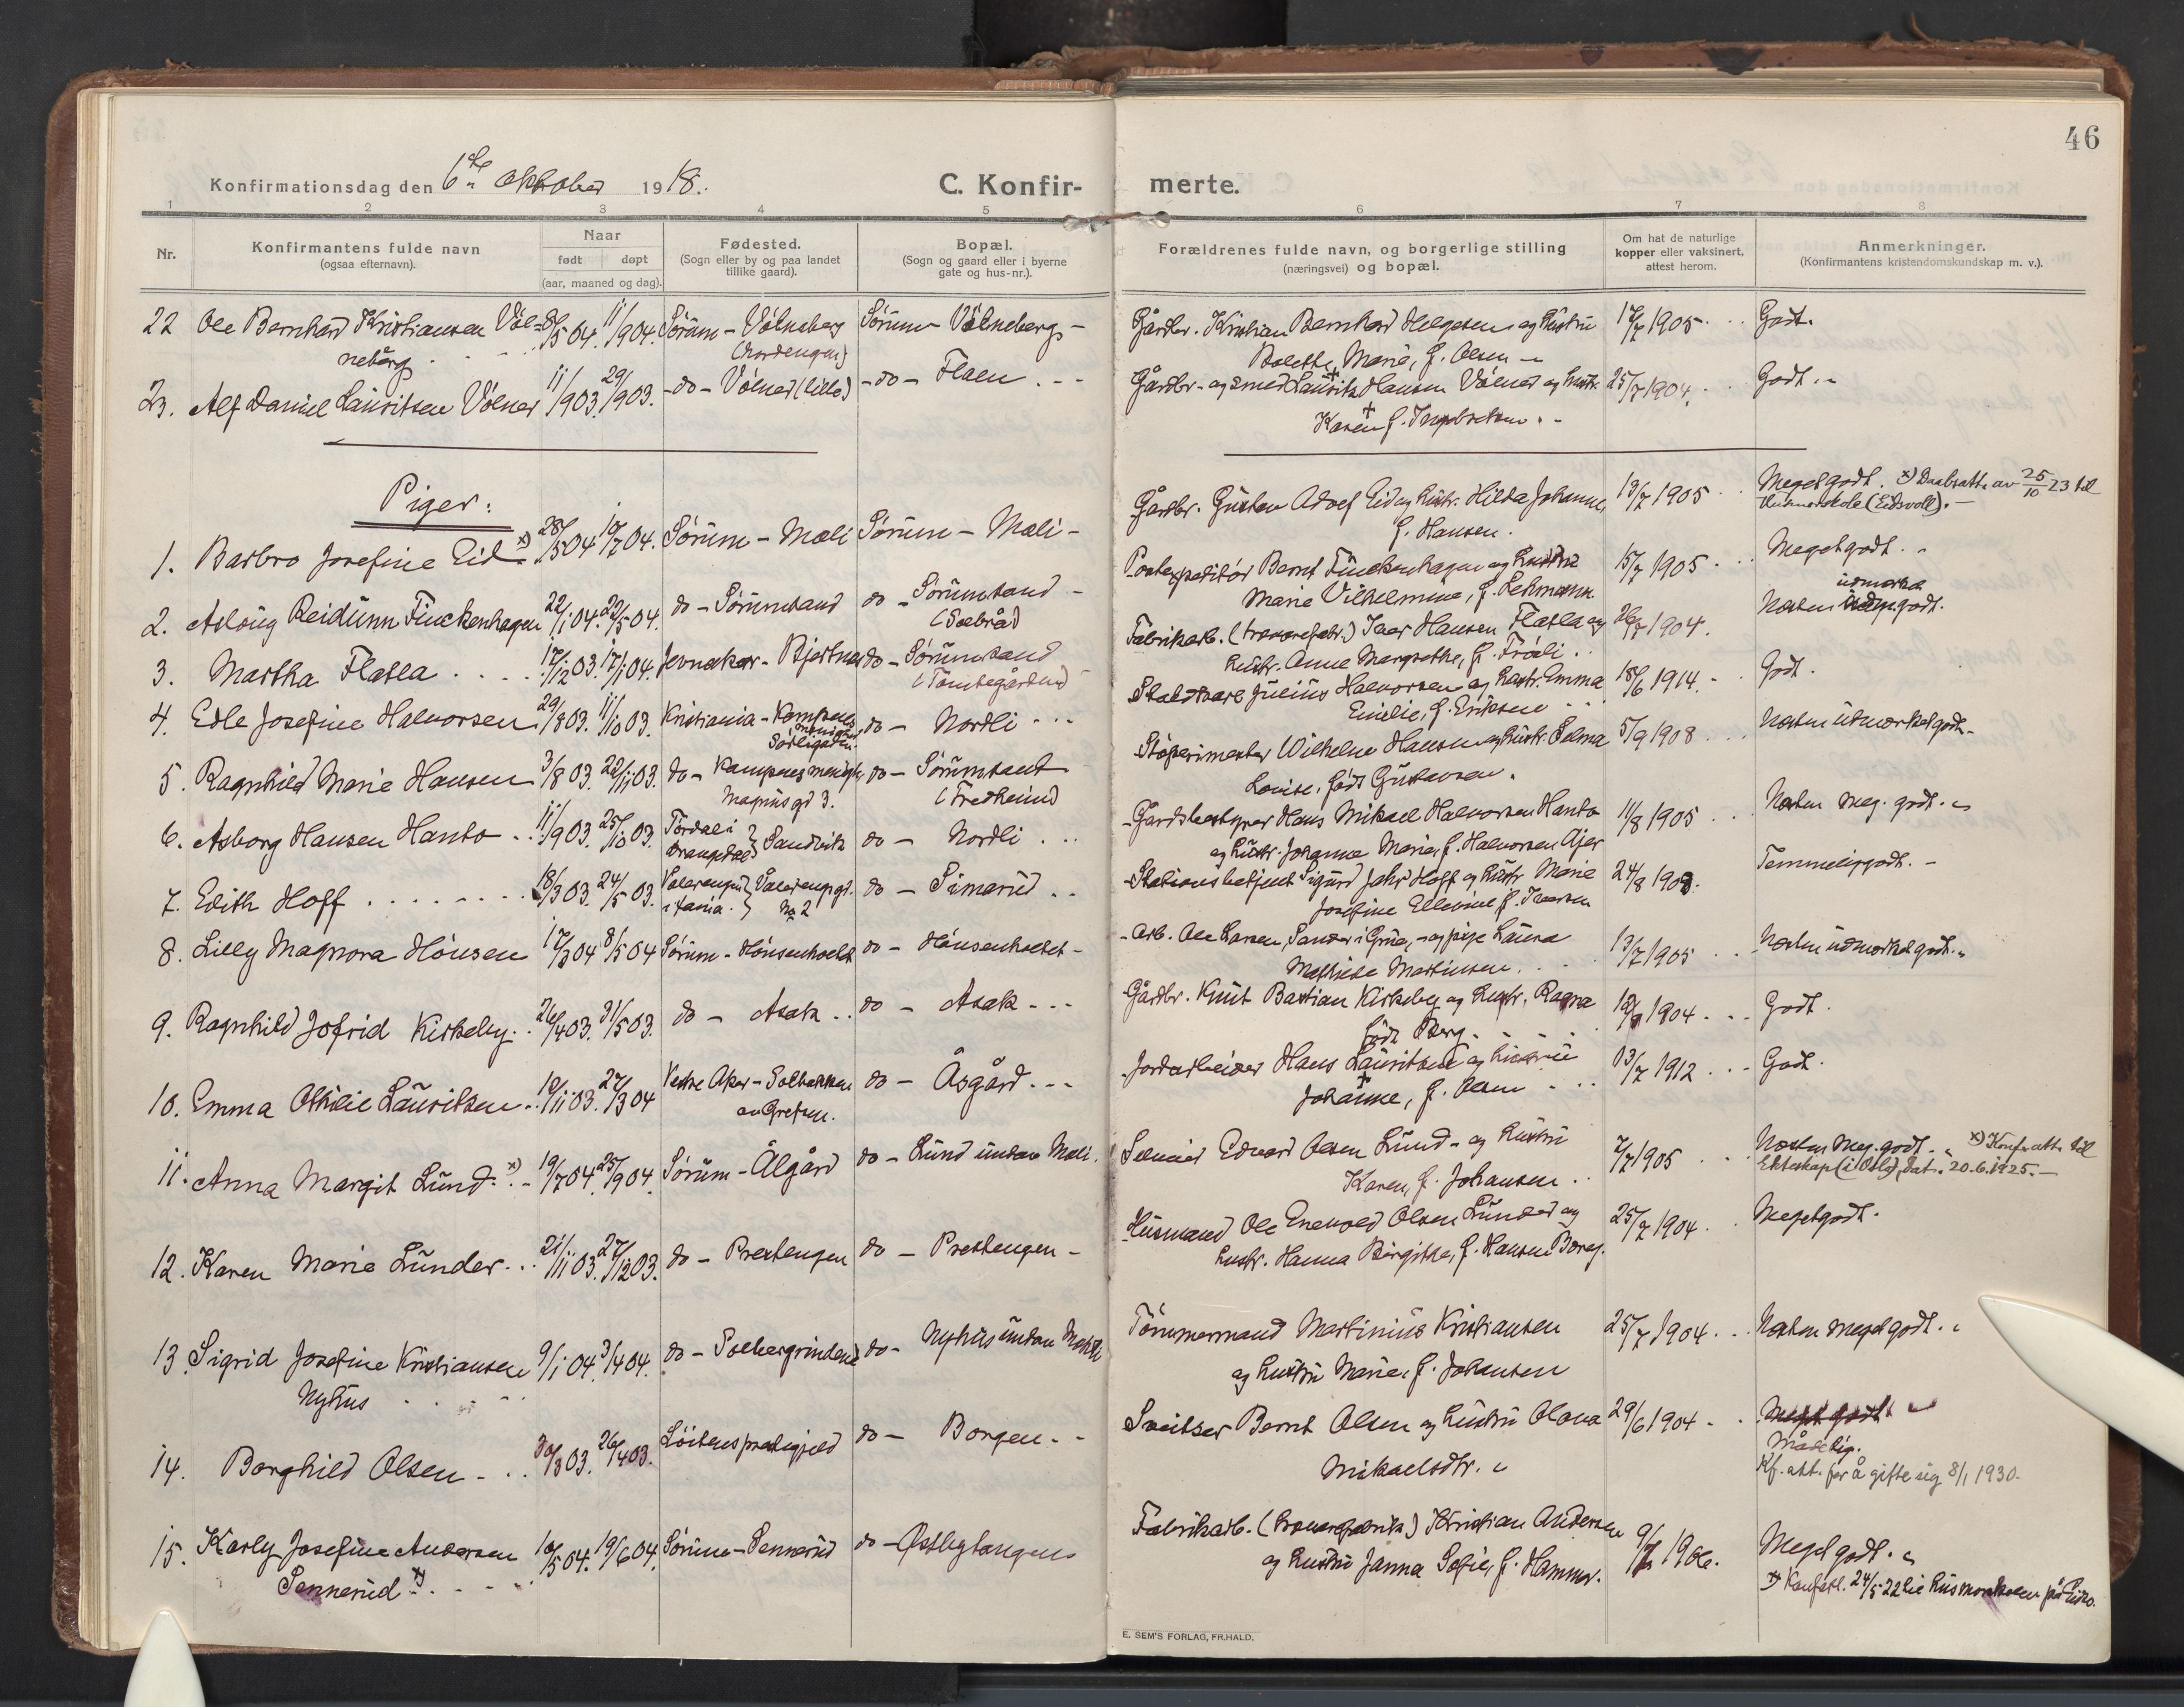 46
Konfirmationsdag den 6te oktober 1918.
C. Konfirmerte.
1 2 3 4 5 6 7 8
Nr.
Konfirmantens fulde navn
(ogsaa efternavn).
Naar
født døpt
(aar, maaned og dag).
Fødested.
(Sogn eller by og paa landet
tillike gaard).
Bopæl.
(Sogn og gaard eller i byerne
gate og hus-nr.).
Forældrenes fulde navn, og borgerlige stilling
(næringsvei) og bopæl.
Om hat de naturlige
kopper eller vaksinert,
attest herom.
Anmerkninger.
(Konfirmantens kristendomskundskap m. v.).
22 Ole Bernhard Kristiansen Völ- 8/5 04. 11/9 04. Sørum - Völneberg Sørum - Völneberg - Gårdbr. Kristian Bernhard Helgesen og hustru 17/7 1905. Godt.
neberg (Nordengen) Bolette Marie, f. Olsen -
23. Alf Daniel Lauritsen Völner 11/9 03. 29/9 03. - do - Völner (lille) - do - Flaen . - - Gårdbr. og smed Lauritz Hansen Völner og hustr. 25/7 1904. Godt. -
Karen + f. Ingebretsen. -
Piger:
1. Barbro Josefine Eid x) 28/5 04 10/7 04. Sørum - Mæli Sørum - Mæli - Gårdbr. Gustav Adolf Eid og hustr. Hilda Johanne, 13/7 1905 Meget godt. x) Daabsatt. av 25/10 23 til
f. Hansen. Husmorskole (Eidsvoll). -
2. Aslaug Reidunn Finckenhagen 22/1 04. 22/5 04. do - Sørumsand do - Sørumsand - Postexpeditör Bernt Finckenhagen og hustru 15/7 1905 Meget godt. -
(Solbråd) Marie Vilhelmine, f. Lehmann
3. Martha Flatla 17/12 03. 17/1 04. Jevnaker - Bjertnes do - Sørumsand Fabrikarb. (trævarefabr.) Iver Hansen Flatla og 26/7 1904. Næsten udmerket godt.
(Tomtegården) hustr. Anne Margrethe, f. Tröeli . .
4. Edle Josefine Halvorsen 29/8 03. 11/10 03. Kristiania - Kampens do - Nordli - - - Staldkarl Julius Halvorsen og hustr. Emma 18/6 1914. Godt.
menighet Sörligaten Emilie, f. Eriksen
5. Ragnhild Marie Hansen 3/8 03. 22/11 03. do - Kampens menigh. do - Sørumsand Stöperimester Wilhelm Hansen og hustr. Selma 5/9 1908 Næsten udmerket godt. -
Magnus gt 3. (Fredheim) Louise, född Gustavsen.
6. Asborg Hansen Hanto 11/9 03. 25/10 03. Tördal i do - Nordli . . . Gårdsbestyrer Hans Mikael Halvorsen Hanto 11/8 1905 Næsten meg. godt. -
Drangedal } Sandvik og hustr. Johanne Marie, f. Halvorsen Ajer
7. Edith Hoff 18/3 03. 24/5 03. Vålerengen } Vålereng gt. do - Simerud . . Stationsbetjent Sigurd Jahr Hoff og hustr. Marie 24/8 1903. Temmelig godt. -
i X.ania. No 2 Josefine Ellevine f. Iversen
8. Lilly Magnora Hönsen 17/3 04 8/5 04 Sørum - Hönsenholtet do - Hönsenholtet - Arb. Ole Larsen, Sander i Grue, - og pige Laura 13/7 1905 Næsten udmerket godt. -
Mathilde Martinsen.
9. Ragnhild Jofrid Kirkeby . . 26/4 03. 31/5 03. do - Asak . . do - Asak - - - Gårdbr. Knut Bastian Kirkeby og hustr. Ragna 12/8 1904 Godt.
född Berg.
10. Emma Othilie Lauritsen 10/11 03. 27/3 04 Vestre Aker - Solbakken do - Åsgård - - - Jordarbeider Hans Lauritsen og hustru 13/7 1912 Godt.
av Grefsen. Johanne, + f. Olsen
11. Anna Margit Lund x) 19/7 04 25/9 04. Sørum - Algård do - Lund under Mæli. Selveier Edvard Olsen Lund - og hustru 7/7 1905 Næsten meg. godt. x) Konf. att. til
Karen, f. Johansen . . Ekteskap (i Oslo), dat. 20.6.1925. -
12. Karen Marie Lunder 21/11 03. 27/12 03. do - Prestengen do - Prestengen - Husmand Ole Enevold Olsen Lunder og 25/7 1904. Meget godt.
hustr. Hanna Birgithe, f. Hansen Borg.
13. Sigrid Josefine Kristiansen 9/1 04. 3/4 04. do - Solbergrinden do - Nyhus under Mæli Tömmermand Martinius Kristiansen 25/7 1904 Næsten meget godt.
Nyhus og hustru Marie, f. Johansen
14. Borghild Olsen 30/3 03. 26/4 03. Löitens prestegjeld do - Borgen - - Sveitser Bernt Olsen og hustru Olava 29/6 1904 Meget godt
Mikaelsdtr. Måtelig.
Kf. att. for å gifte sig 8/1 1930.
15. Karly Josefine Andersen 10/5 04. 19/6 04. Sørum - Sennerud do - Østbytangen Fabrikarb. (trævarefabrik) Kristian Andersen 9/7 1906. Meget godt.
Sennerud x) og hustru Janna Sofie, f. Hammer. x) Konf.att. 24/5 22 til husmorskolen på Eidsv.
E. SEM'S FORLAG, FR.HALD.